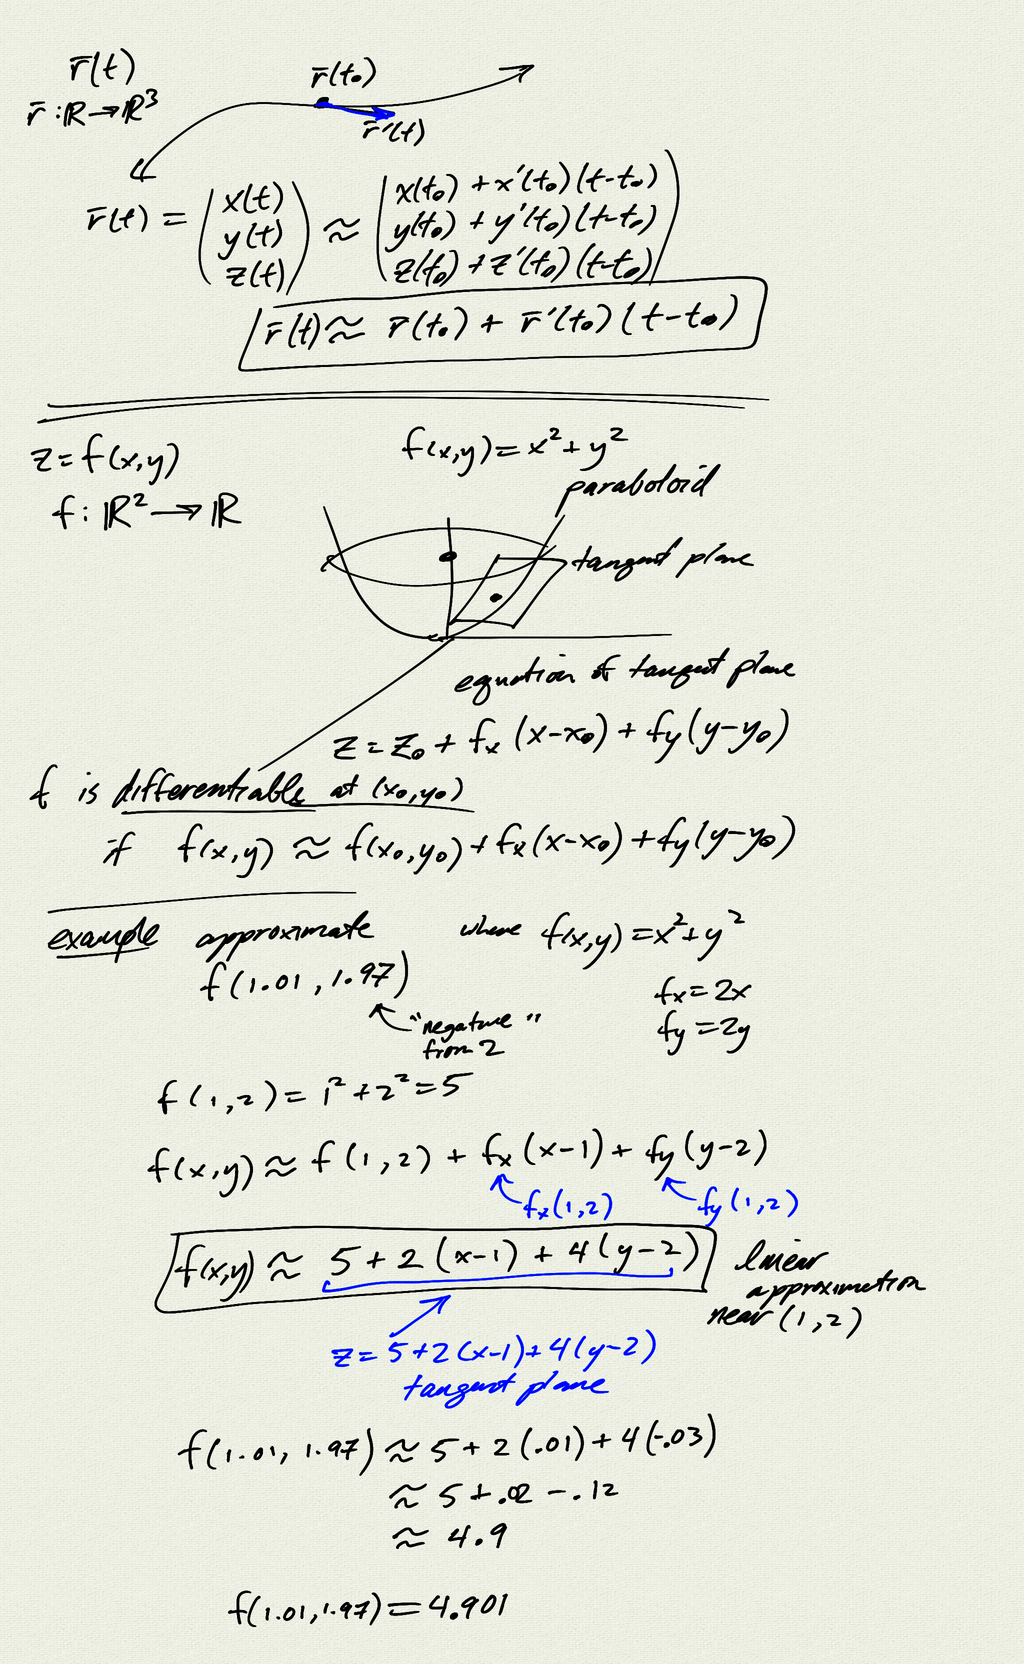 r̄(t)
r̄(t₀)
r̄ : ℝ → ℝ³
r̄'(t)
r̄(t) = (x(t) y(t) z(t)) ≈ (x(t₀) + x'(t₀)(t-t₀)
y(t₀) + y'(t₀)(t-t₀)
z(t₀) + z'(t₀)(t-t₀))
r̄(t) ≈ r̄(t₀) + r̄'(t₀)(t-t₀)
z = f(x,y)
f(x,y) = x² + y²
paraboloid
f : ℝ² → ℝ
tangent plane
equation of tangent plane
z = z₀ + fx(x-x₀) + fy(y-y₀)
f is differentiable at (x₀,y₀)
if f(x,y) ≈ f(x₀,y₀) + fx(x-x₀) + fy(y-y₀)
example approximate where f(x,y) = x² + y²
f(1.01, 1.97)
fx = 2x
"negative"
from 2
fy = 2y
f(1,2) = 1² + 2² = 5
f(x,y) ≈ f(1,2) + fx(x-1) + fy(y-2)
fx(1,2) fy(1,2)
f(x,y) ≈ 5 + 2(x-1) + 4(y-2)
linear
approximation
near (1,2)
z = 5+2(x-1)+4(y-2)
tangent plane
f(1.01, 1.97) ≈ 5 + 2(.01) + 4(-.03)
≈ 5 + .02 - .12
≈ 4.9
f(1.01,1.97) = 4.901